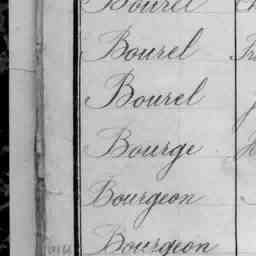 Bourel
Bourel
Bourel
Bourge
Bourgeon
Bourgeon